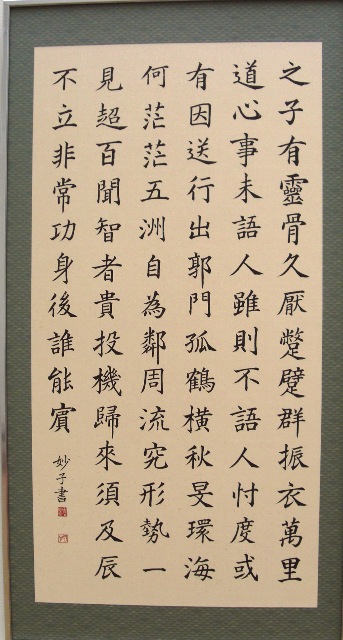 之子有靈骨久厭蹩躄群振衣萬里
道心事未語人雖則不語人忖度或
有因送行出郭門孤鶴橫秋旻環海
何茫茫五洲自為鄰周流究形勢一
見超百聞智者貴投機歸來須及辰
不立非常功身後誰能賓
妙子書